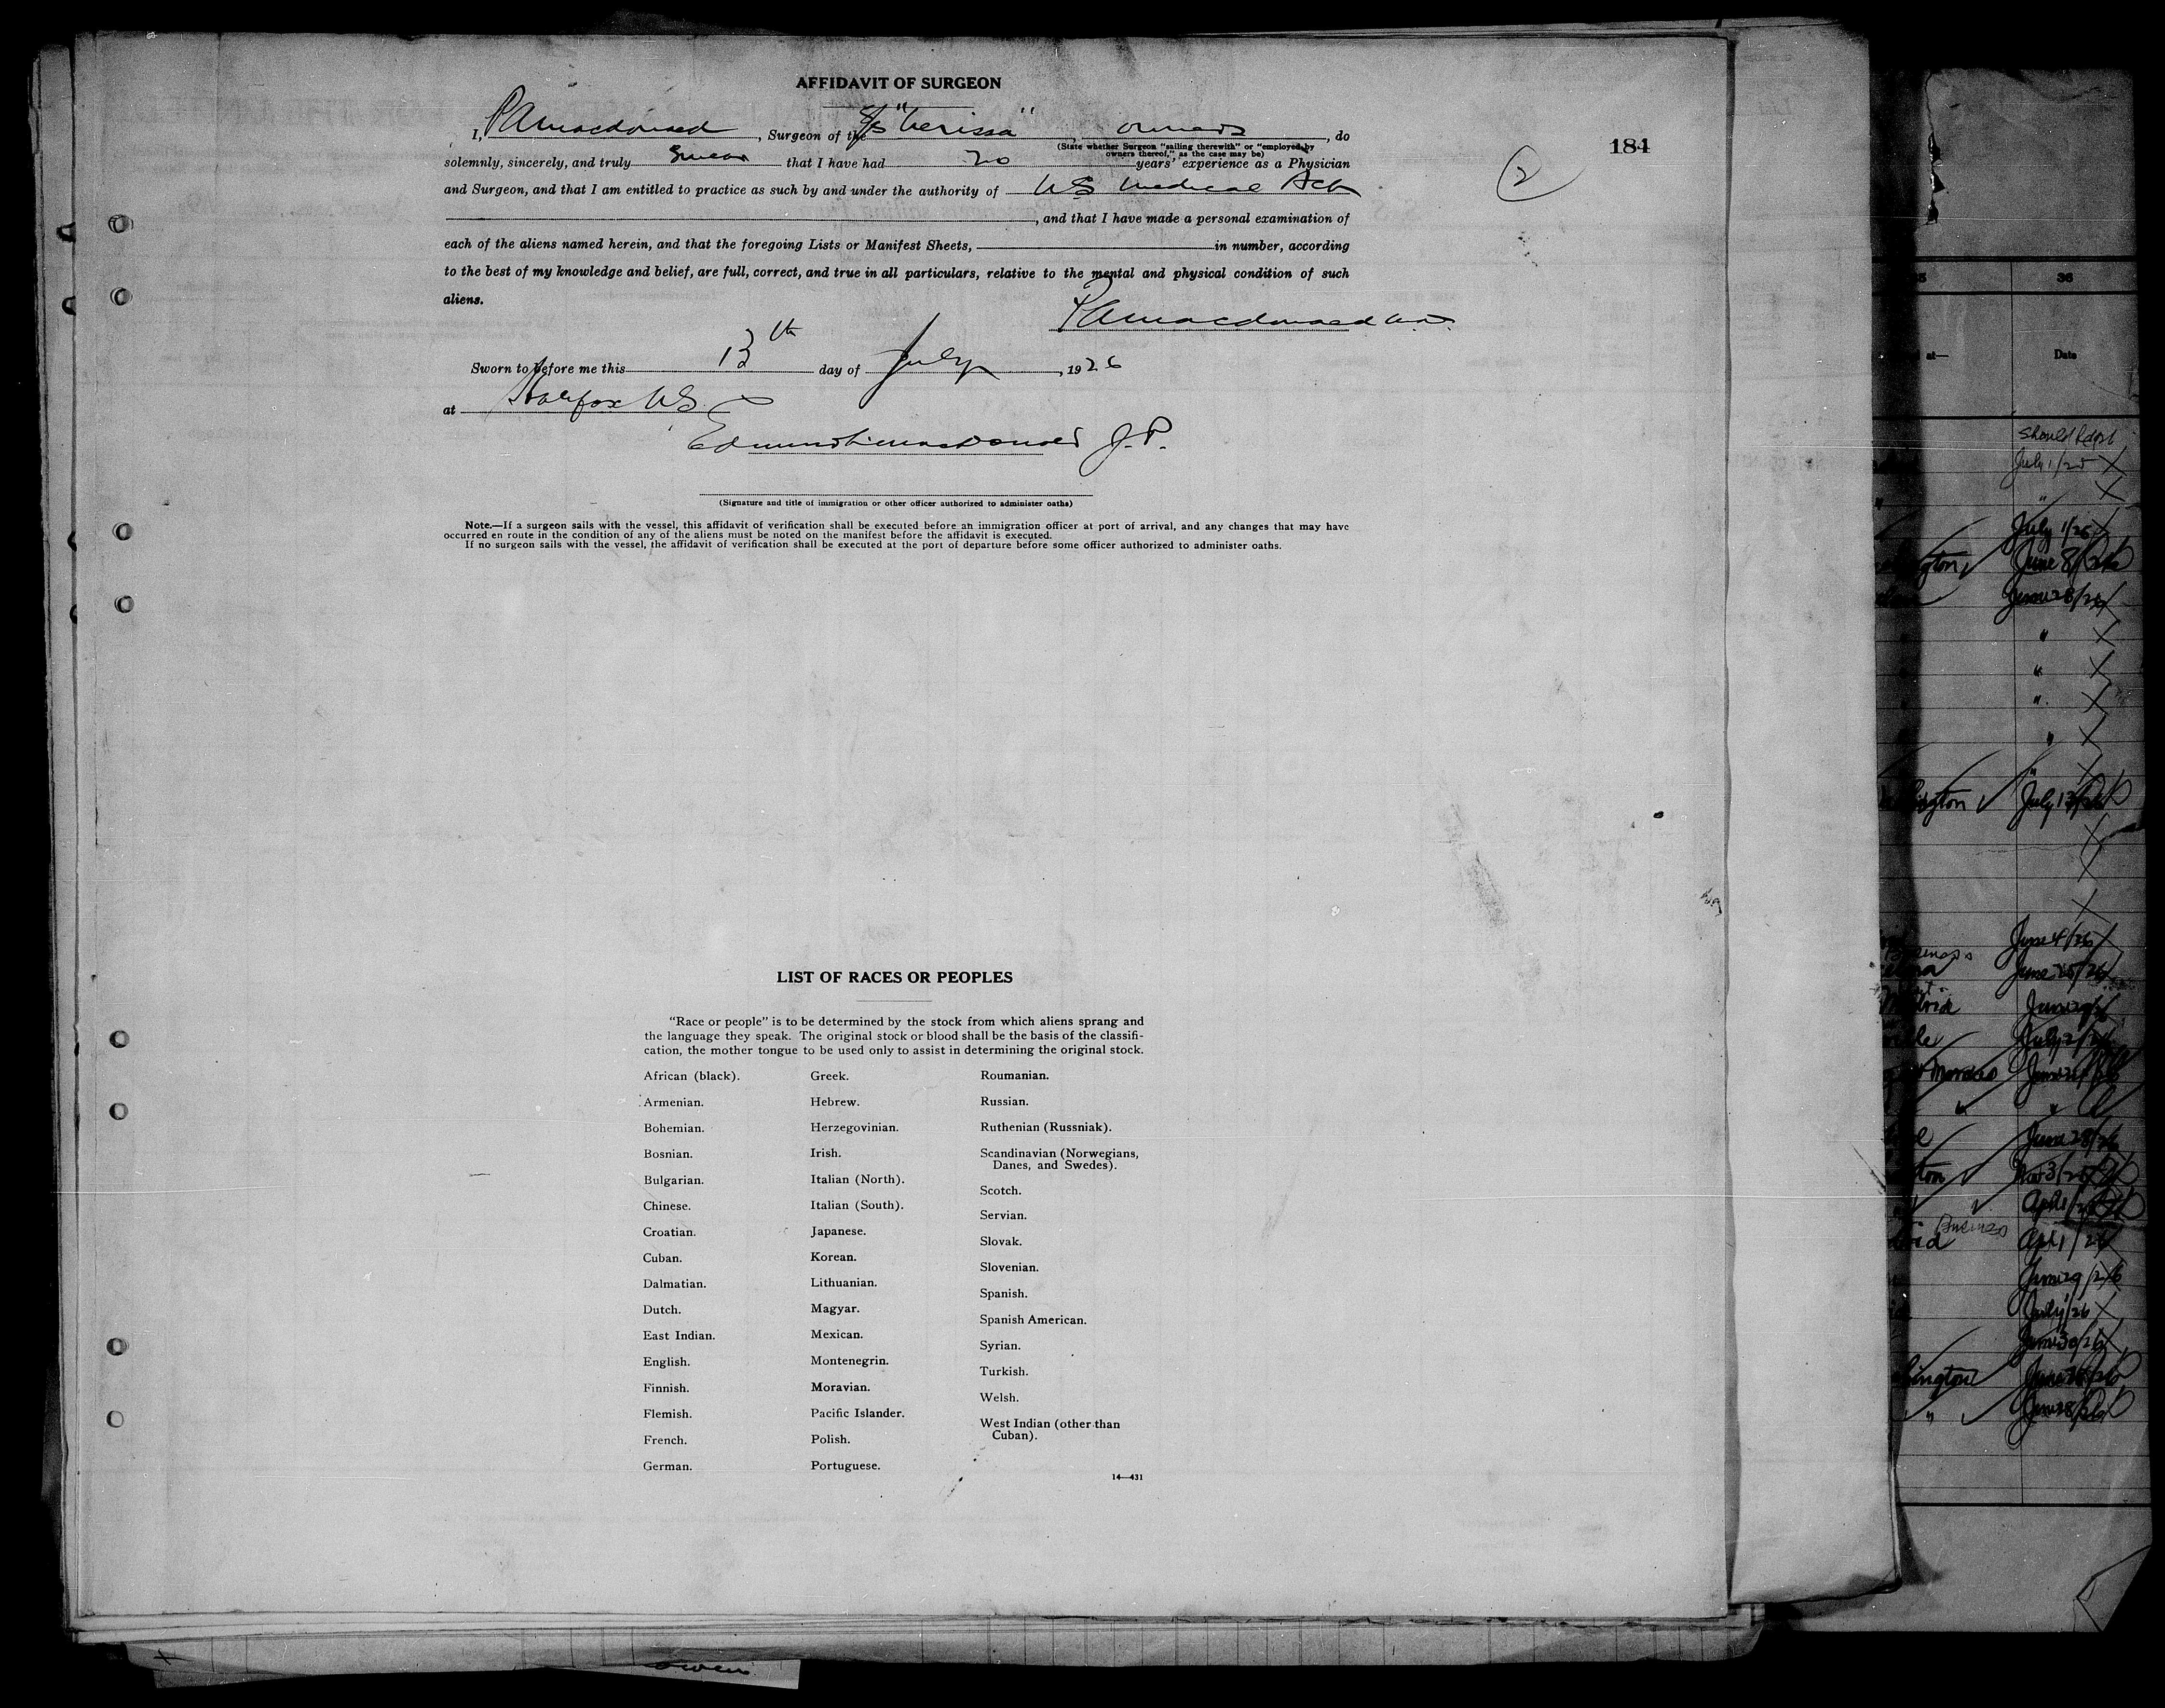 AFFIDAVIT OF SURGEON
184
2
I, P A Macdonald, Surgeon of the S/S "Nerissa", owners, do
(State whether Surgeon "sailing therewith" or "employed by
owners thereof," as the case may be)
solemnly, sincerely, and truly swear that I have had 20 years' experience as a Physician
and Surgeon, and that I am entitled to practice as such by and under the authority of NS Medical Act
, and that I have made a personal examination of
each of the aliens named herein, and that the foregoing Lists or Manifest Sheets, in number, according
to the best of my knowledge and belief, are full, correct, and true in all particulars, relative to the mental and physical condition of such
aliens.
P A Macdonald M.D.
Sworn to before me this 13th day of July, 1926
at Halifax NS
MacDonald J.P.
(Signature and title of immigration or other officer authorized to administer oaths)
Note.—If a surgeon sails with the vessel, this affidavit of verification shall be executed before an immigration officer at port of arrival, and any changes that may have
occurred en route in the condition of any of the aliens must be noted on the manifest before the affidavit is executed.
If no surgeon sails with the vessel, the affidavit of verification shall be executed at the port of departure before some officer authorized to administer oaths.
LIST OF RACES OR PEOPLES
"Race or people" is to be determined by the stock from which aliens sprang and
the language they speak. The original stock or blood shall be the basis of the classifi-
cation, the mother tongue to be used only to assist in determining the original stock.
African (black).
Armenian.
Bohemian.
Bosnian.
Bulgarian.
Chinese.
Croatian.
Cuban.
Dalmatian.
Dutch.
East Indian.
English.
Finnish.
Flemish.
French.
German.
Greek.
Hebrew.
Herzegovinian.
Irish.
Italian (North).
Italian (South).
Japanese.
Korean.
Lithuanian.
Magyar.
Mexican.
Montenegrin.
Moravian.
Pacific Islander.
Polish.
Portuguese.
Roumanian.
Russian.
Ruthenian (Russniak).
Scandinavian (Norwegians,
Danes, and Swedes).
Scotch.
Servian.
Slovak.
Slovenian.
Spanish.
Spanish American.
Syrian.
Turkish.
Welsh.
West Indian (other than
Cuban).
14—431
36
at—
Date
July 1/25
"
July 1/25
June 8/26
June 28/26
"
"
"
"
"
July 13/26
June 4/26
June 25/26
June 29/26
July 2/26
"
June 28/26
Apl 1/26
June 29/26
July 1/26
June 30/26
June 28/26